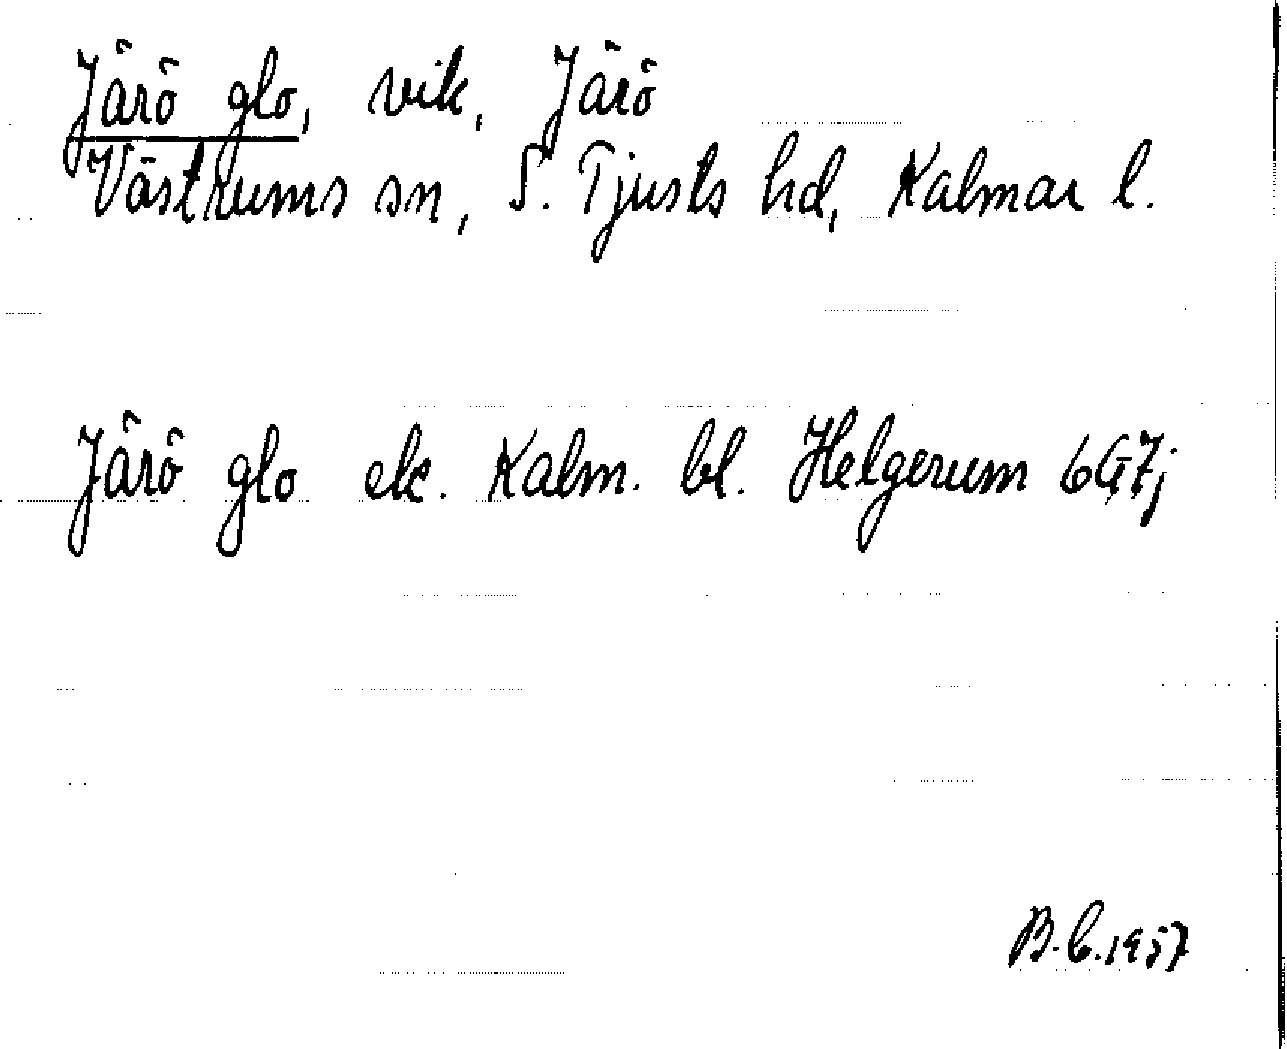 Järö glo, vik, Järö
Västrums sn, S. Tjusts hd, Kalmar l.
Järö glo ek. Kalm. bl. Helgerum 6G7j
B.C.1957